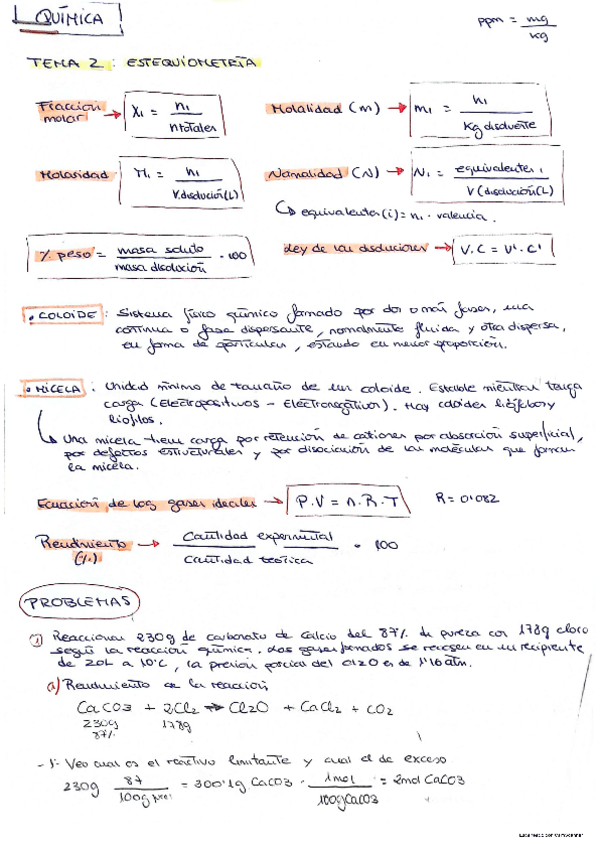 QUÍMICA
ppm = mg / kg
TEMA 2 : ESTEQUIOMETRÍA
Fracción molar → X1 = n1 / ntotales
Molalidad (m) → m1 = n1 / Kg disolvente
Molaridad M1 = n1 / V.disolución(L)
Normalidad (N) → N1 = equivalentes1 / V (disolución(L)
↳ equivalentes(i) = n1 · valencia.
% peso = masa soluto / masa disolución · 100
Ley de las disoluciones → V.C = V'.C'
• COLOIDE : Sistema físico químico formado por dos o más fases, una
continua o fase dispersante, normalmente fluida y otra dispersa,
en forma de partículas, estando en menor proporción.
• MICELA : Unidad mínima de tamaño de un coloide. Estable mientras tenga
carga (Electropositivos - Electronegativos). Hay coloides liófobos y
liófilos.
↳ Una micela tiene carga por retención de cationes por absorción superficial,
por defectos estructurales y por disociación de las moléculas que forman
la micela.
Ecuación de los gases ideales → P.V = n.R.T R = 0'082
Rendimiento (%) → Cantidad experimental / Cantidad teórica · 100
PROBLEMAS
1) Reaccionan 230g de carbonato de calcio del 87% de pureza con 178g cloro
según la reacción química. Los gases formados se recogen en un recipiente
de 20L a 10°C, la presión parcial del Cl2O es de 1'16 atm.
a) Rendimiento de la reacción
CaCO3 + 2Cl2 → Cl2O + CaCl2 + CO2
230g 178g
87%
- 1º Veo cual es el reactivo limitante y cual el de exceso
230g 87 / 100g = 200'1g CaCO3 · 1mol / 100gCaCO3 = 2mol CaCO3